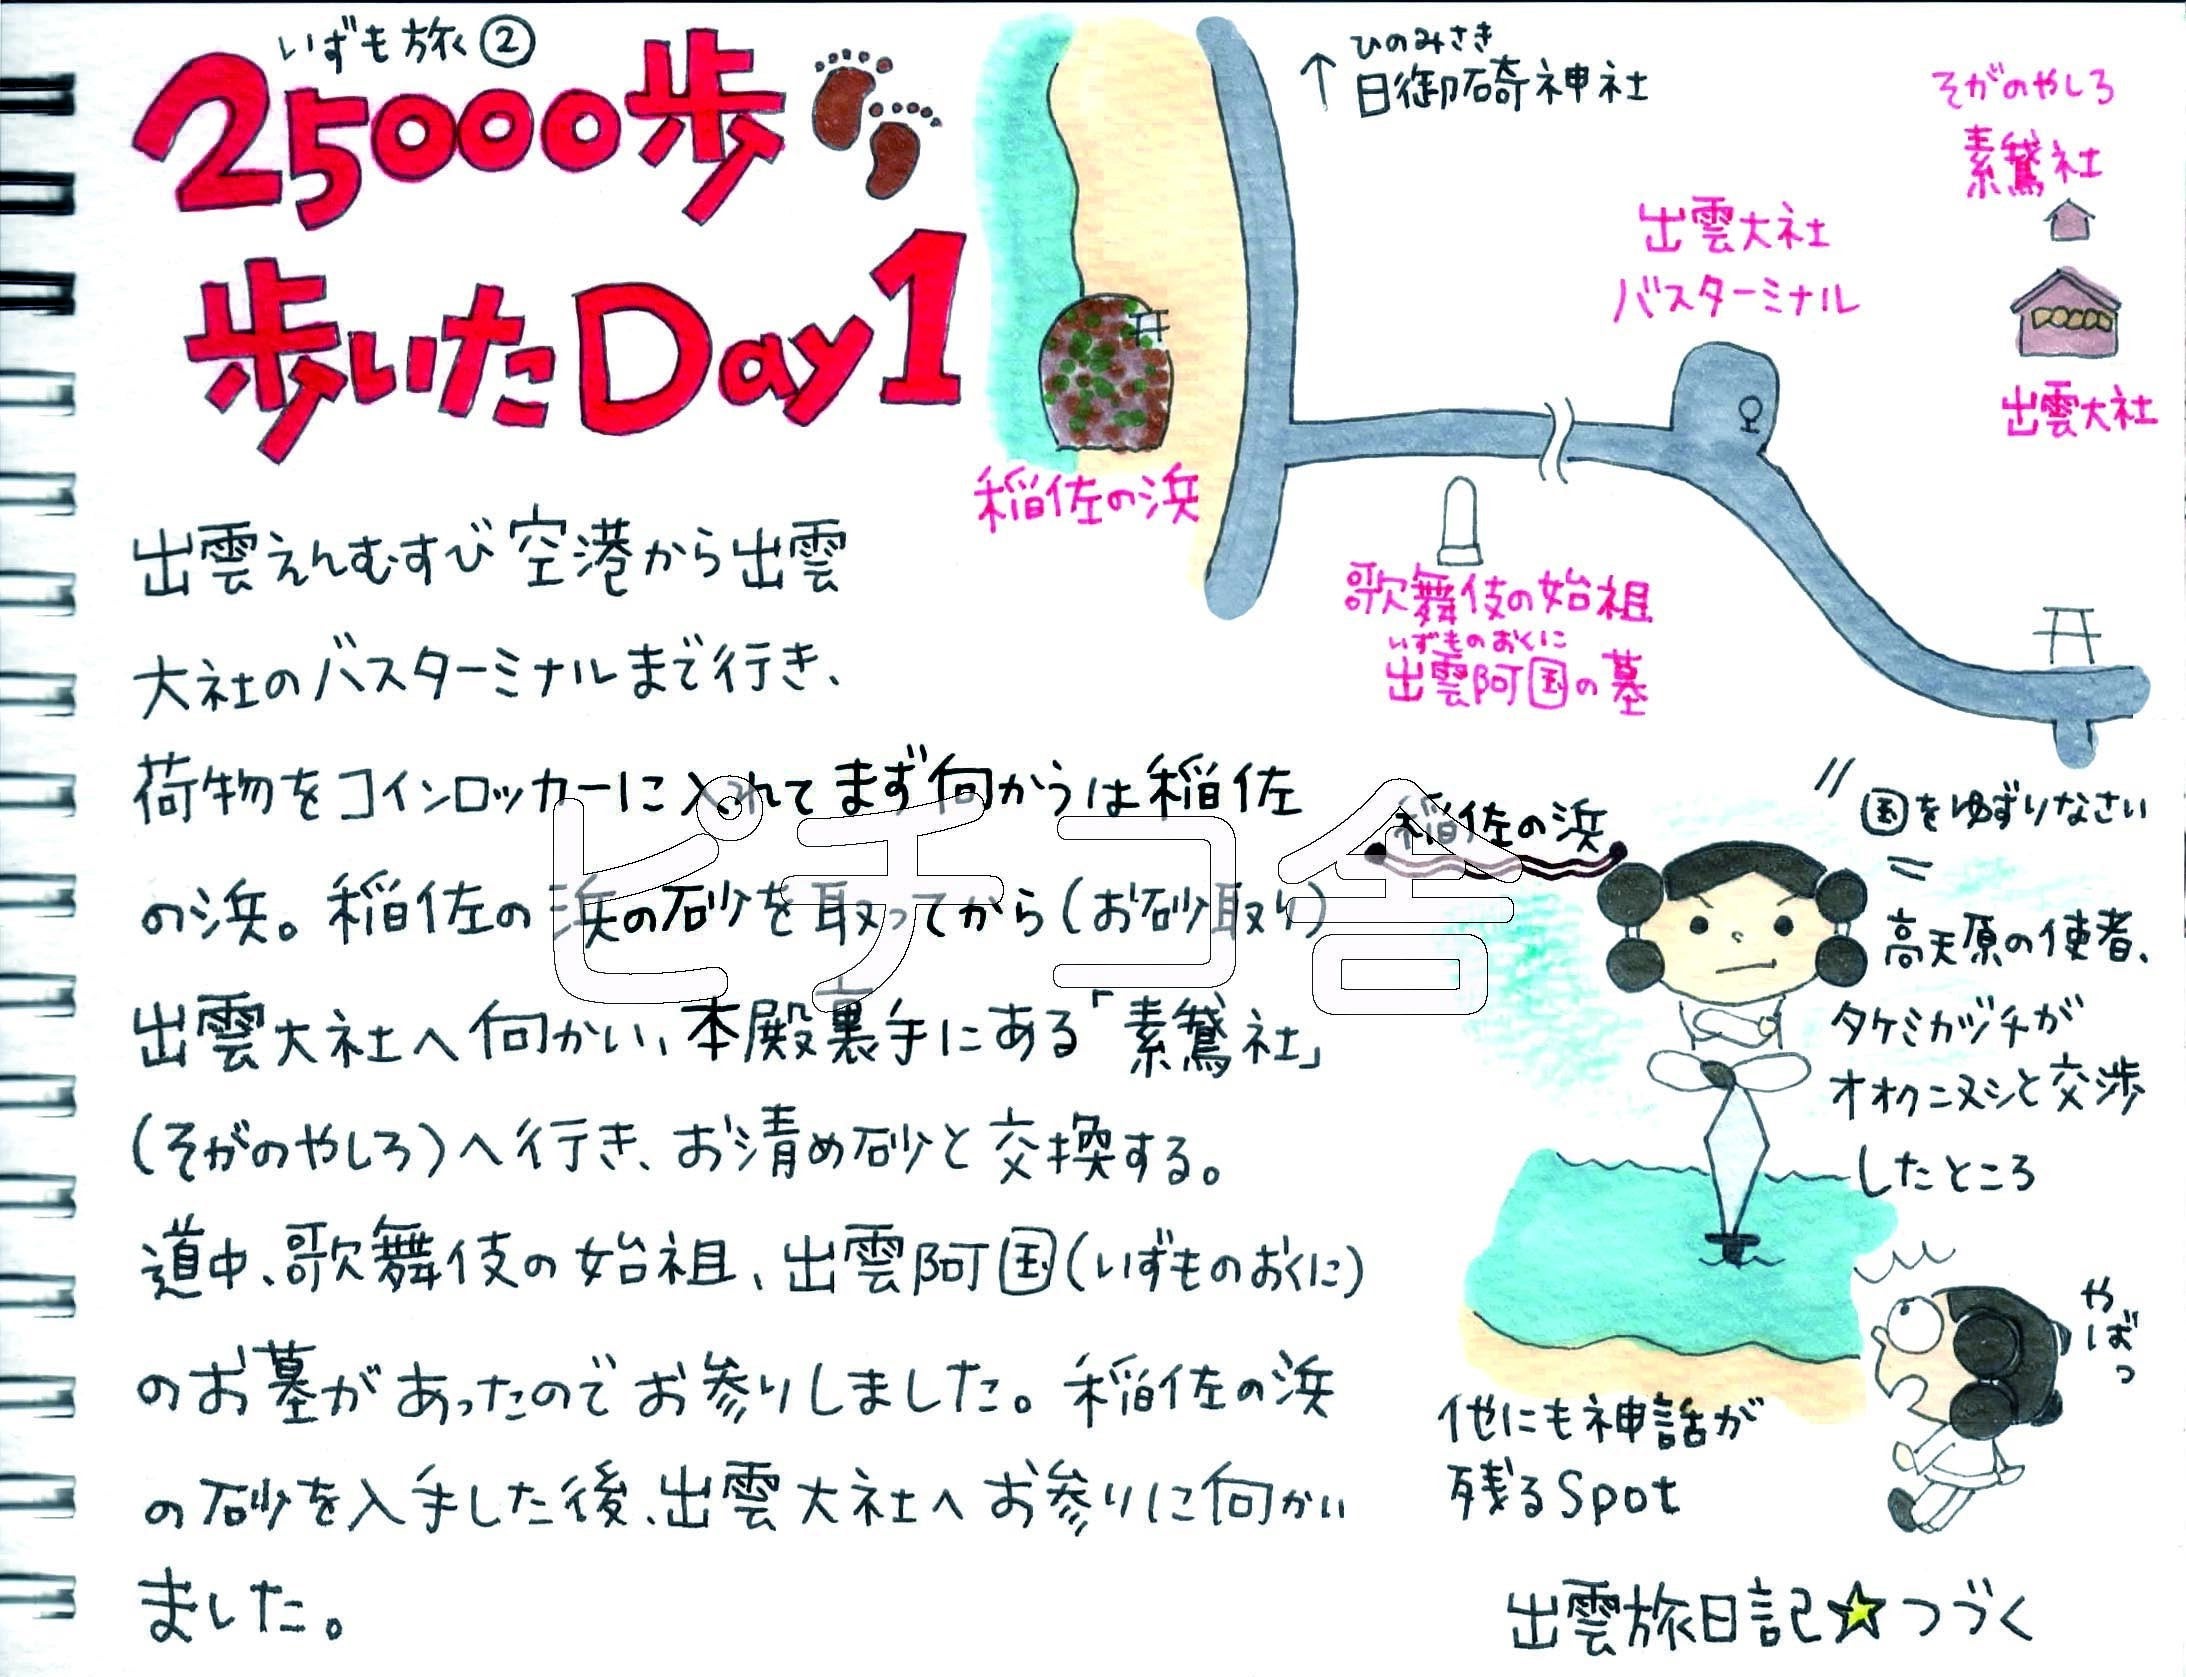 いずも旅②
25000歩
歩いたDay1
出雲えんむすび空港から出雲
大社のバスターミナルまで行き、
荷物をコインロッカーに入れてまず向かうは稲佐
の浜。稲佐の浜の砂を取ってから(お砂取り)
出雲大社へ向かい、本殿裏手にある「素鵞社」
(そがのやしろ)へ行き、お清め砂と交換する。
道中、歌舞伎の始祖、出雲阿国(いずものおくに)
のお墓があったのでお参りしました。稲佐の浜
の砂を入手した後、出雲大社へお参りに向かい
ました。
↑
ひのみさき
日御碕神社
そがのやしろ
素鵞社
出雲大社
バスターミナル
出雲大社
稲佐の浜
歌舞伎の始祖
いずものおくに
出雲阿国の墓
稲佐の浜
国をゆずりなさい
高天原の使者、
タケミカヅチが
オオクニヌシと交渉
したところ
やばっ
他にも神話が
残るSpot
出雲旅日記☆つづく
ピチコ舎